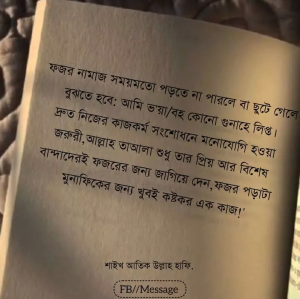 ফজর নামাজ সময়মতো পড়তে না পারলে বা ছুটে গেলে
বুঝতে হবে: আমি ভয়া/বহ কোনো গুনাহে লিপ্ত।
দ্রুত নিজের কাজকর্ম সংশোধনে মনোযোগি হওয়া
জরুরী,আল্লাহ তাআলা শুধু তার প্রিয় আর বিশেষ
বান্দাদেরই ফজরের জন্য জাগিয়ে দেন,ফজর পড়াটা
মুনাফিকের জন্য খুবই কষ্টকর এক কাজ!'
শাইখ আতিক উল্লাহ হাফি.
FB//Message